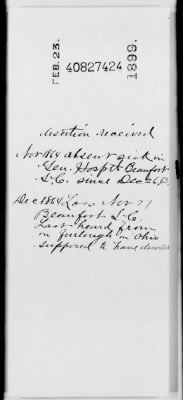 FEB. 23. 40827424 1899.
desertion received
Nov 1864 absent sick in
Gen. Hospt Beaufort
S.C. since Dec 26, 63,
Dec 1864. Loss Nov 21
Beaufort S.C.
Last heard from
on furlough in Ohio
supposed to have deserted